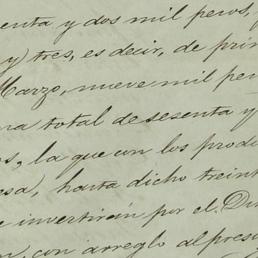 enta y dos mil pesos,
y) tres, es decir, de pri
Marzo, nueve mil pe
ma total de sesenta y
os, la que con los produ
osa), hasta dicho treint
e invertirán por el Du
con arreglo al presu